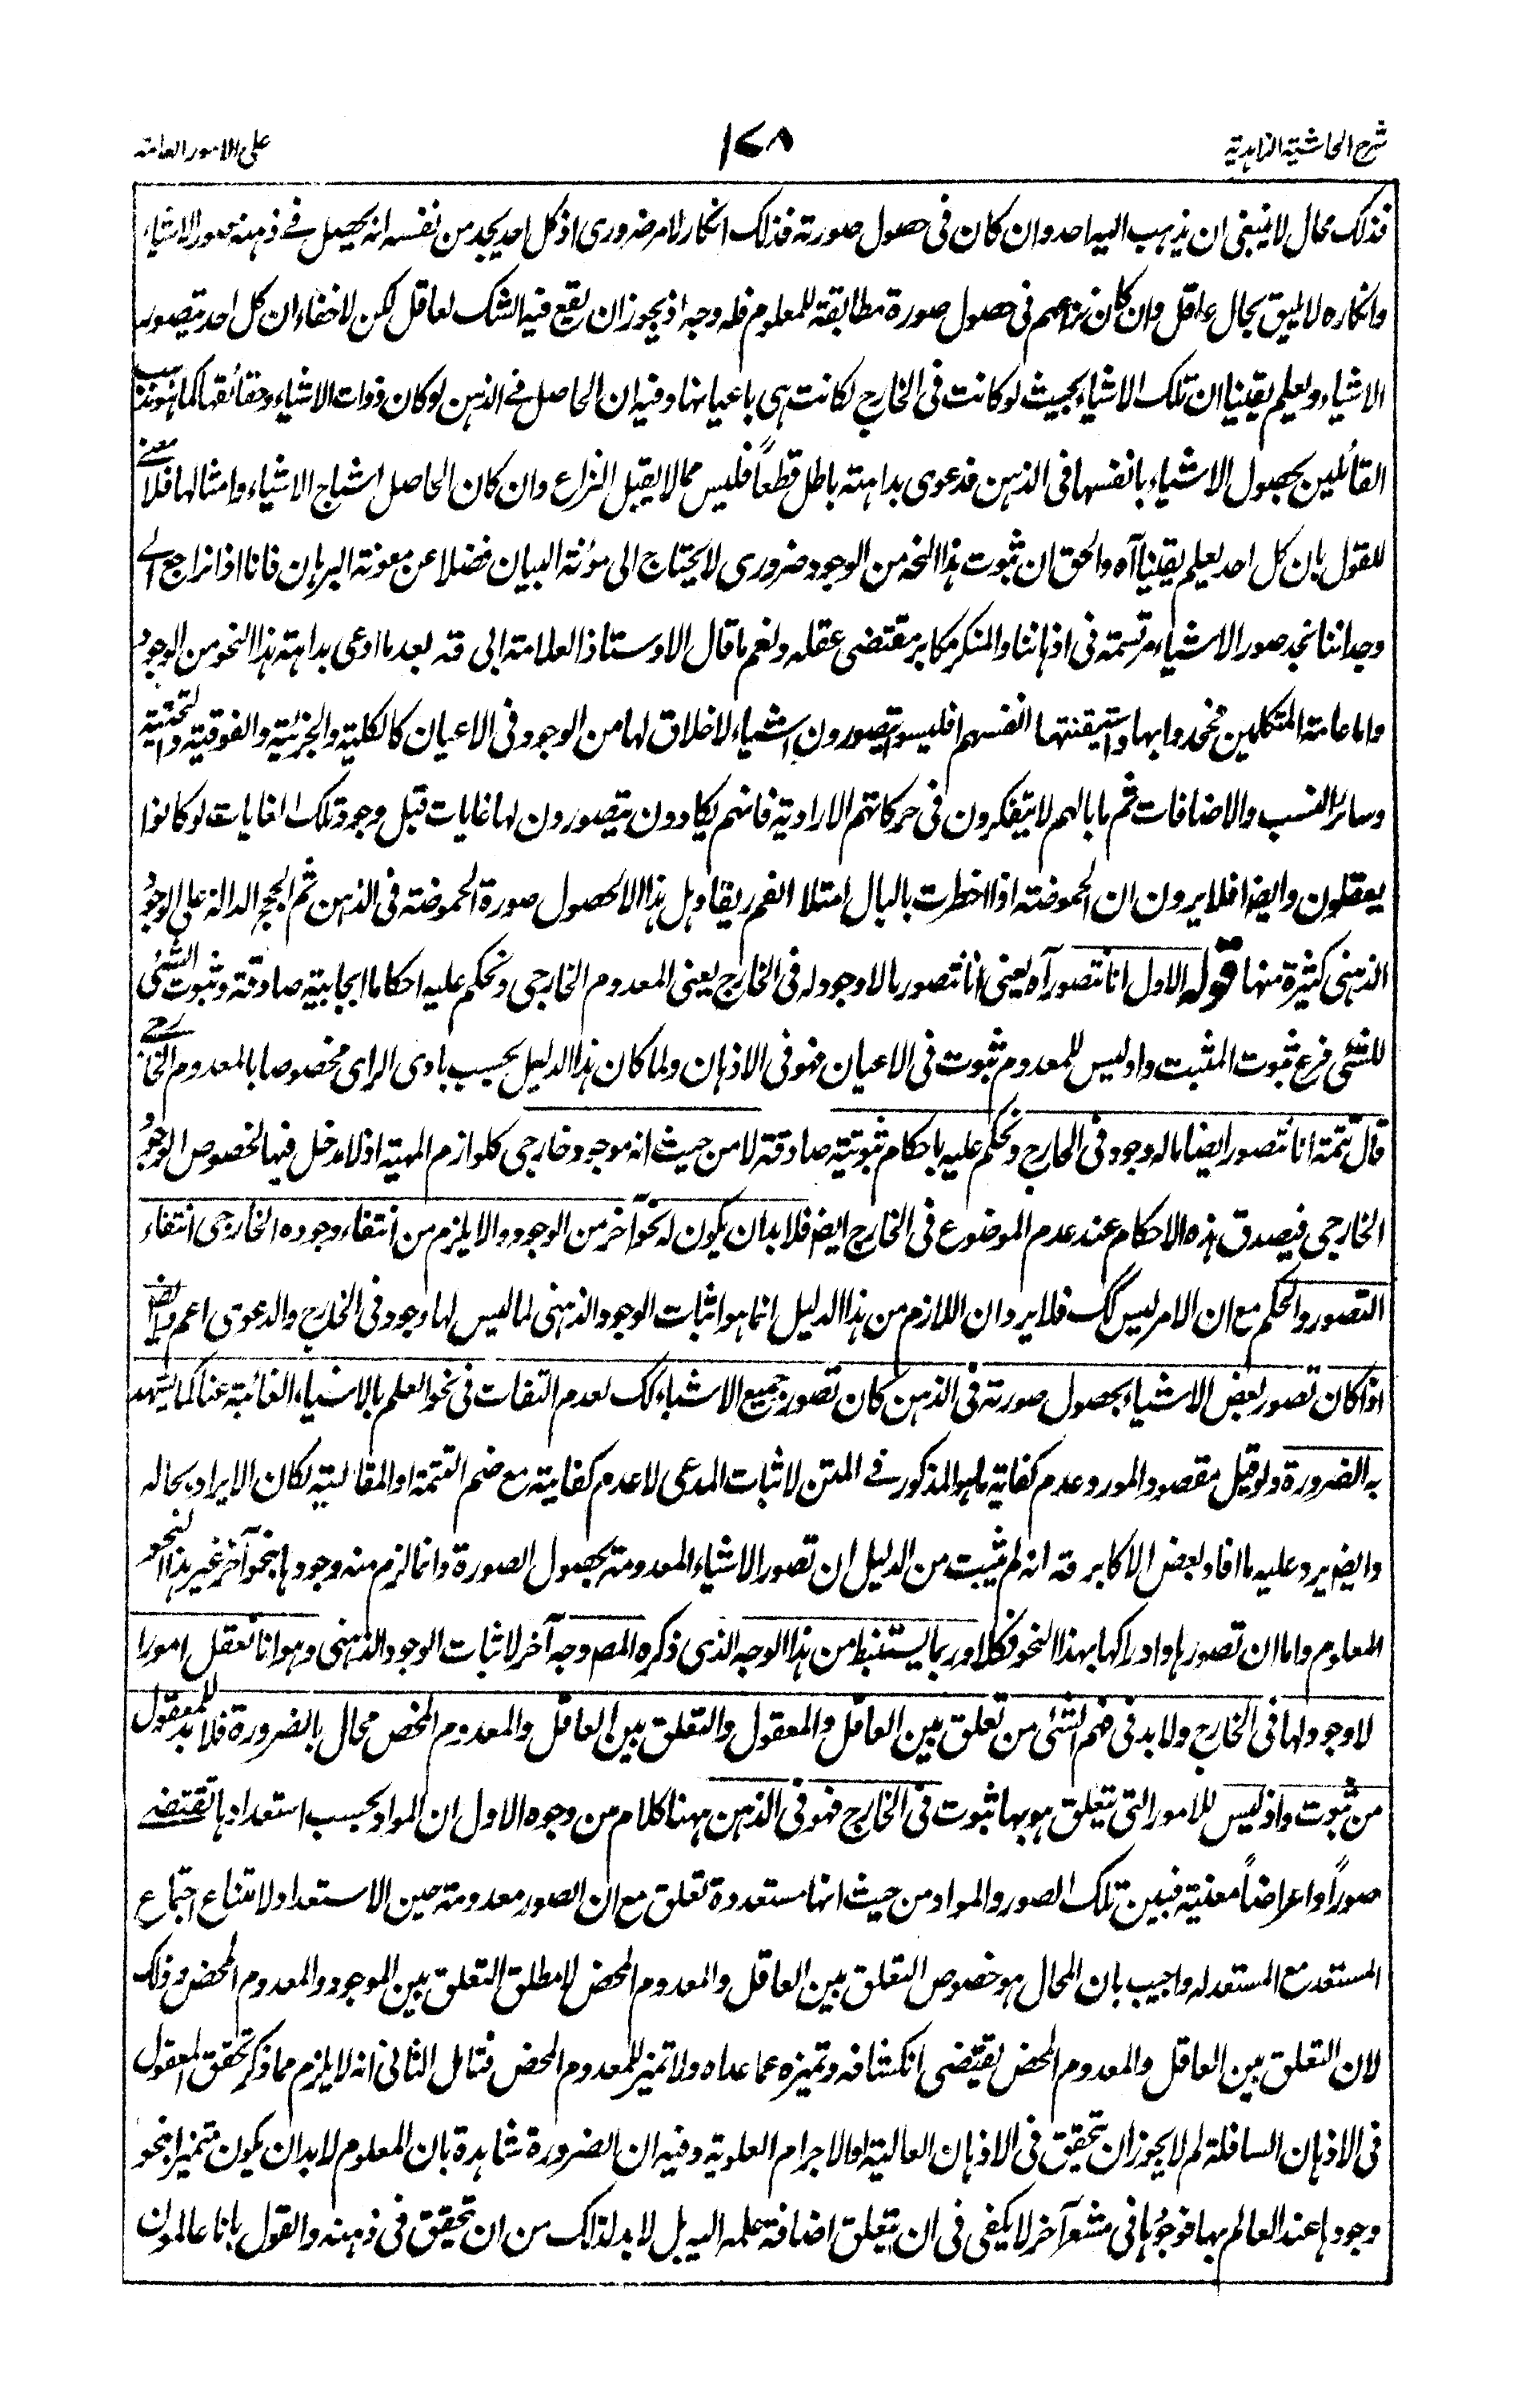 شرح الحاشية الزاهدية
١٧٨
على الامور العامة
فذلك محال لا ينبغى ان يذهب اليه احد وان كان فى حصول صورته فذلك انكار لامر ضرورى اذ كل احد يجد من نفسه انه يحصل فى ذهنه صور الاشياء
وانكاره لا يليق بحال عاقل وان كان نزاعهم فى حصول صورة مطابقة للمعلوم فله وجه اذ يجوز ان يقع فيه الشك لعاقل لكن لا خفاء ان كل احد يتصور
الاشياء ويعلم يقينا ان تلك الاشياء بحيث لو كانت فى الخارج لكانت هى باعيانها وفيه ان الحاصل فى الذهن لو كان ذوات الاشياء وحقائقها كما هو مذهب
القائلين بحصول الاشياء بانفسها فى الذهن فدعوى بداهته باطل قطعاً فليس مما لا يقبل النزاع وان كان الحاصل اشباح الاشياء وامثالها فلا معنى
للقول بان كل احد يعلم يقينا آه والحق ان ثبوت هذا النحو من الوجود ضرورى لا يحتاج الى مؤنة البيان فضلا عن معونة البرهان فانا اذا نراجع الى
وجداننا نجد صور الاشياء مرتسمة فى اذهاننا والمنكر مكابر مقتضى عقله ونعم ما قال الاوستاذ العلامة ابى قه بعد ما ادعى بداهة هذا النحو من الوجود
واما عامة المتكلمين فجحدوا بها واستيقنتها انفسهم افليسوا يتصورون اشياء لا خلاق لها من الوجود فى الاعيان كالكلية والجزئية والفوقية والتحتية
وسائر النسب والاضافات ثم ما بالهم لا يتفكرون فى حركاتهم الارادية فانهم يكادون يتصورون لها غايات قبل وجود تلك الغايات لو كانوا
يعقلون وايضا افلا يرون ان الحموضة اذا اخطرت بالبال امتلا الفم ريقا وهل هذا الا لحصول صورة الحموضة فى الذهن ثم الحجج الدالة على الوجود
الذهنى كثيرة منها قوله الاول انا نتصور آه يعنى انا نتصور ما لا وجود له فى الخارج يعنى المعدوم الخارجى ونحكم عليه احكاما ايجابية صادقة وثبوت الشئ
للشئ فرع ثبوت المثبت واذ ليس للمعدوم ثبوت فى الاعيان فهو فى الاذهان ولما كان هذا الدليل بحسب بادى الراى مخصوصا بالمعدوم الخارجى
قال تتمة انا نتصور ايضا ما له وجود فى الخارج ونحكم عليه باحكام ثبوتية صادقة لا من حيث انه موجود خارجى كلوازم المهية اذ لا مدخل فيها لخصوص الوجود
الخارجى فيصدق هذه الاحكام عند عدم الموضوع فى الخارج ايضا فلا بد ان يكون له نحو آخر من الوجود والا يلزم من انتفاء وجوده الخارجى انتفاء
التصور والحكم مع ان الامر ليس كك فلا يرد ان اللازم من هذا الدليل انما هو اثبات الوجود الذهنى لما ليس لها وجود فى الخارج والدعوى اعم وايضا
اذا كان تصور بعض الاشياء بحصول صورته فى الذهن كان تصور جميع الاشياء كك لعدم التفات فى نحو العلم بالاشياء الغائبة عنا كما يشهد
به الضرورة ولو قيل مقصود المورد عدم كفاية ما هو المذكور فى المتن لاثبات المدعى لا عدم كفايته مع ضم التتمة او المقايسة لكان الايراد بحاله
وايضا يرد عليه ما افاد بعض الاكابر قه انه لم يثبت من الدليل ان تصور الاشياء المعدومة بحصول الصورة وانما لزم منه وجودها بنحو آخر غير هذا النحو
المعلوم واما ان تصورها وادراكها بهذا النحو فكلا وربما يستنبط من هذا الوجه الذى ذكره المص وجه آخر لاثبات الوجود الذهنى وهو انا نعقل امورا
لا وجود لها فى الخارج ولا بد فى فهم الشئ من تعلق بين العاقل والمعقول والتعلق بين العاقل والمعدوم المحض محال بالضرورة فلا بد للمعقول
من ثبوت واذ ليس للامور التى يتعلق هو بها ثبوت فى الخارج فهو فى الذهن ههنا كلام من وجوه الاول ان المواد بحسب استعدادها تقتضى
صوراً واعراضاً معينة فبين تلك الصور والمواد من حيث انها مستعدة تعلق مع ان الصور معدومة حين الاستعداد لامتناع اجتماع
المستعد مع المستعد له واجيب بان المحال هو خصوص التعلق بين العاقل والمعدوم المحض لا مطلق التعلق بين الموجود والمعدوم المحض وذلك
لان التعلق بين العاقل والمعدوم المحض يقتضى انكشافه وتميزه عما عداه ولا تميز للمعدوم المحض فتامل الثانى انه لا يلزم مما ذكر تحقق المعقول
فى الاذهان السافلة لم لا يجوز ان يتحقق فى الاذهان العالية او الاجرام العلوية وفيه ان الضرورة شاهدة بان المعلوم لا بد ان يكون متميزا بنحو
وجودها عند العالم بها فوجودها فى مشعر آخر لا يكفى فى ان يتعلق اضافة علمه اليه بل لا بد لذلك من ان يتحقق فى ذهنه والقول بانا عالمون